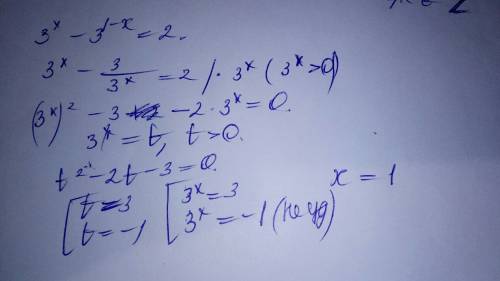 3^x - 3^{1-x} = 2.
3^x - 3/3^x = 2 | · 3^x (3^x > 0)
(3^x)^2 - 3 - 2 · 3^x = 0.
3^x = t, t > 0.
t^2 - 2t - 3 = 0.
[ t = 3 [ 3^x = 3 x = 1
t = -1 3^x = -1 (не уд)